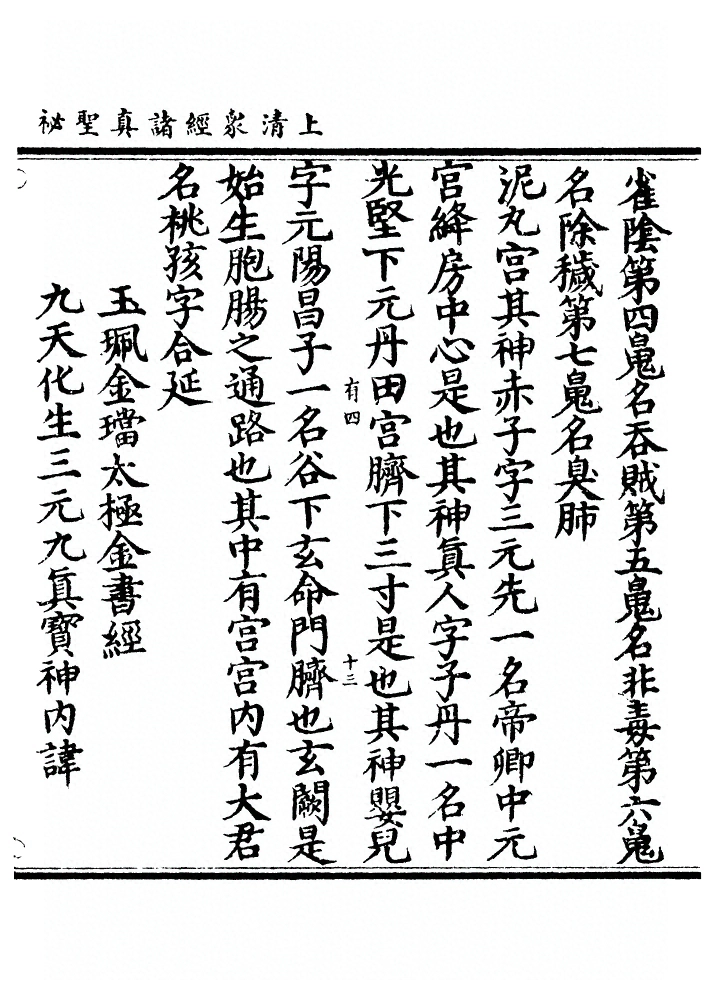 上清衆經諸真聖祕
雀陰第四䰟名吞賊第五䰟名非毒第六䰟
名除穢第七䰟名臭肺
泥丸宮其神赤子字三元先一名帝卿中元
宮絳房中心是也其神真人字子丹一名中
光堅下元丹田宮臍下三寸是也其神嬰兒
有四
十三
字元陽昌子一名谷下玄命門臍也玄闕是
始生胞腸之通路也其中有宮宮內有大君
名桃孩字合延
玉珮金璫太極金書經
九天化生三元九真寶神內諱